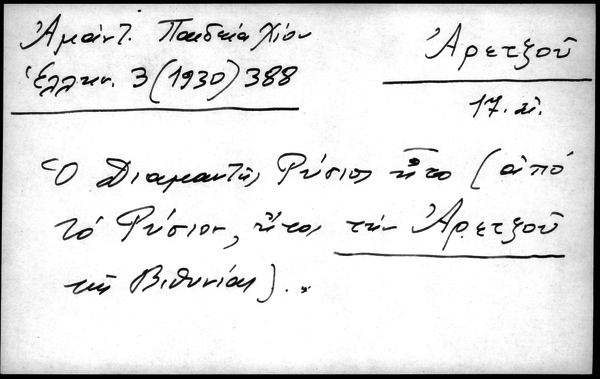 Ἀμάντ. Παιδεία Χίου
Ἑλλην. 3 (1930) 388
Ἀρετζοῦ
17. αἰ.
Ὁ Διαμαντῆς Ρύσιος ἦτο (ἀπό
τό Ρύσιον, ἤτοι τήν Ἀρετζοῦ
τῆς Βιθυνίας)...